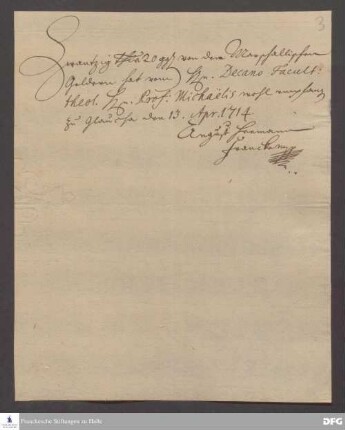 3
Zwantzig thlr à 20 ggr. von dem Marschallischen
Geldern hat vom H. Decano Facult.
theol. H. Prof. Michaelis wohl empfang
zu Glaucha den 13. Apr. 1714
August Hermann
Francke
Franckesche Stiftungen zu Halle
DFG